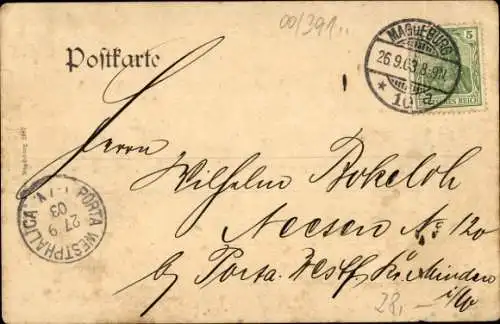 00/391..
Postkarte
MAGDEBURG
26.9.03.8-9N.
* 10 a
5
DEUTSCHES REICH
Herrn
Wilhelm Bokeloh
Neesen No 120
by Porta. Westf. Kr. Minden
i/W
PORTA WESTPHALICA
27 9
03
28,-